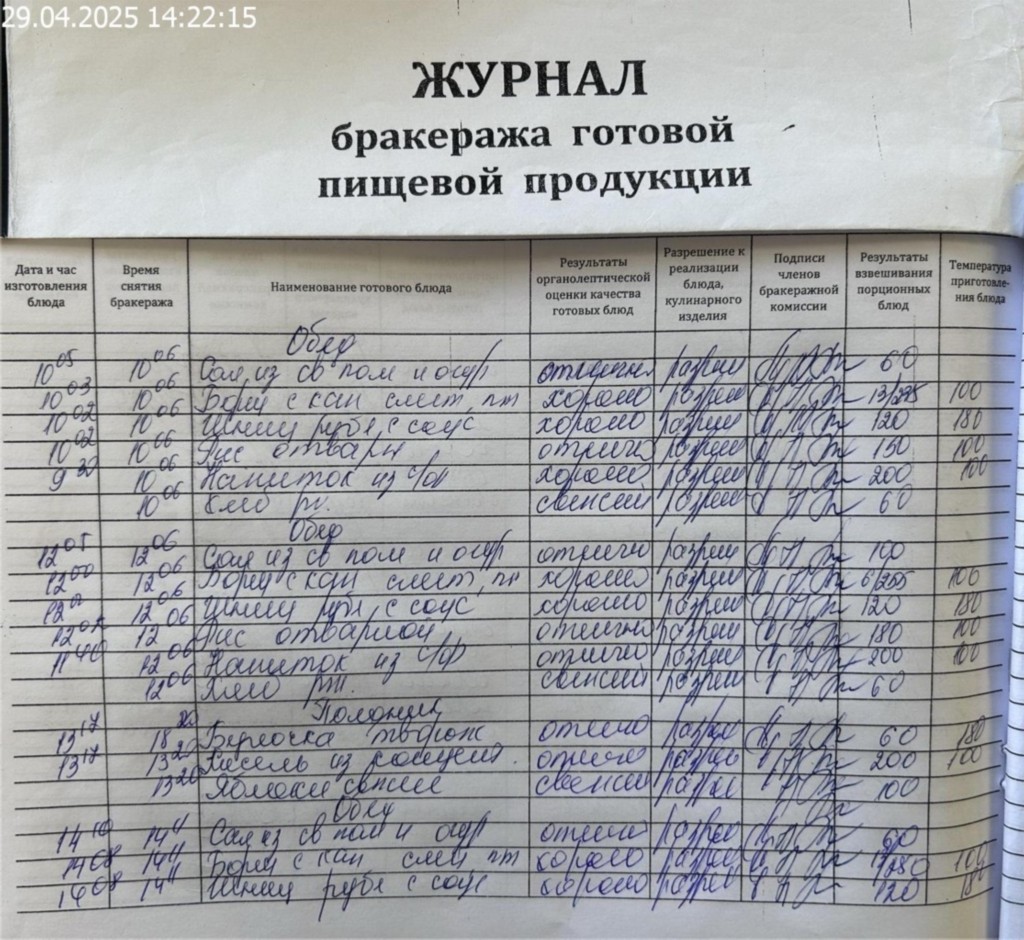 29.04.2025 14:22:15
ЖУРНАЛ
бракеража готовой
пищевой продукции
Дата и час изготовления блюда
Время снятия бракеража
Наименование готового блюда
Результаты органолептической оценки качества готовых блюд
Разрешение к реализации блюда, кулинарного изделия
Подписи членов бракеражной комиссии
Результаты взвешивания порционных блюд
Температура приготовле-ния блюда
Обед
10 05 10 06 Сал из св пом и огур отлично разреш 60
10 03 10 06 Борщ с кап смет, пт хорошо разреш 100
10 02 10 06 Шниц рубл с соус хорошо разреш 120 180
10 02 10 06 Рис отварн отлично разреш 150 100
9 30 10 06 Напиток из с/ф хорошо разреш 200 100
10 06 Хлеб рж. разреш 60
Обед
12 05 12 06 Сал из св пом и огур отлично разреш 100
12 00 12 06 Борщ с кап смет, пт хорошо разреш 100
12 06 Шниц рубл с соус хорошо разреш 120 180
12 06 Рис отварной отлично разреш 180 100
11 40 12 06 Напиток из с/ф отлично разреш 200 100
12 06 Хлеб рж. разреш 60
Полдник
13 17 Булочка творож отлично разреш 60 180
13 17 13 20 Кисель из отлично разреш 200 100
13 20 Яблоки свежие разреш 100
Обед
14 10 14 11 Сал из св пом и огур отлично разреш 60
14 08 14 11 Борщ с кап смет пт хорошо разреш
14 08 14 11 Шниц рубл с соус хорошо разреш 120